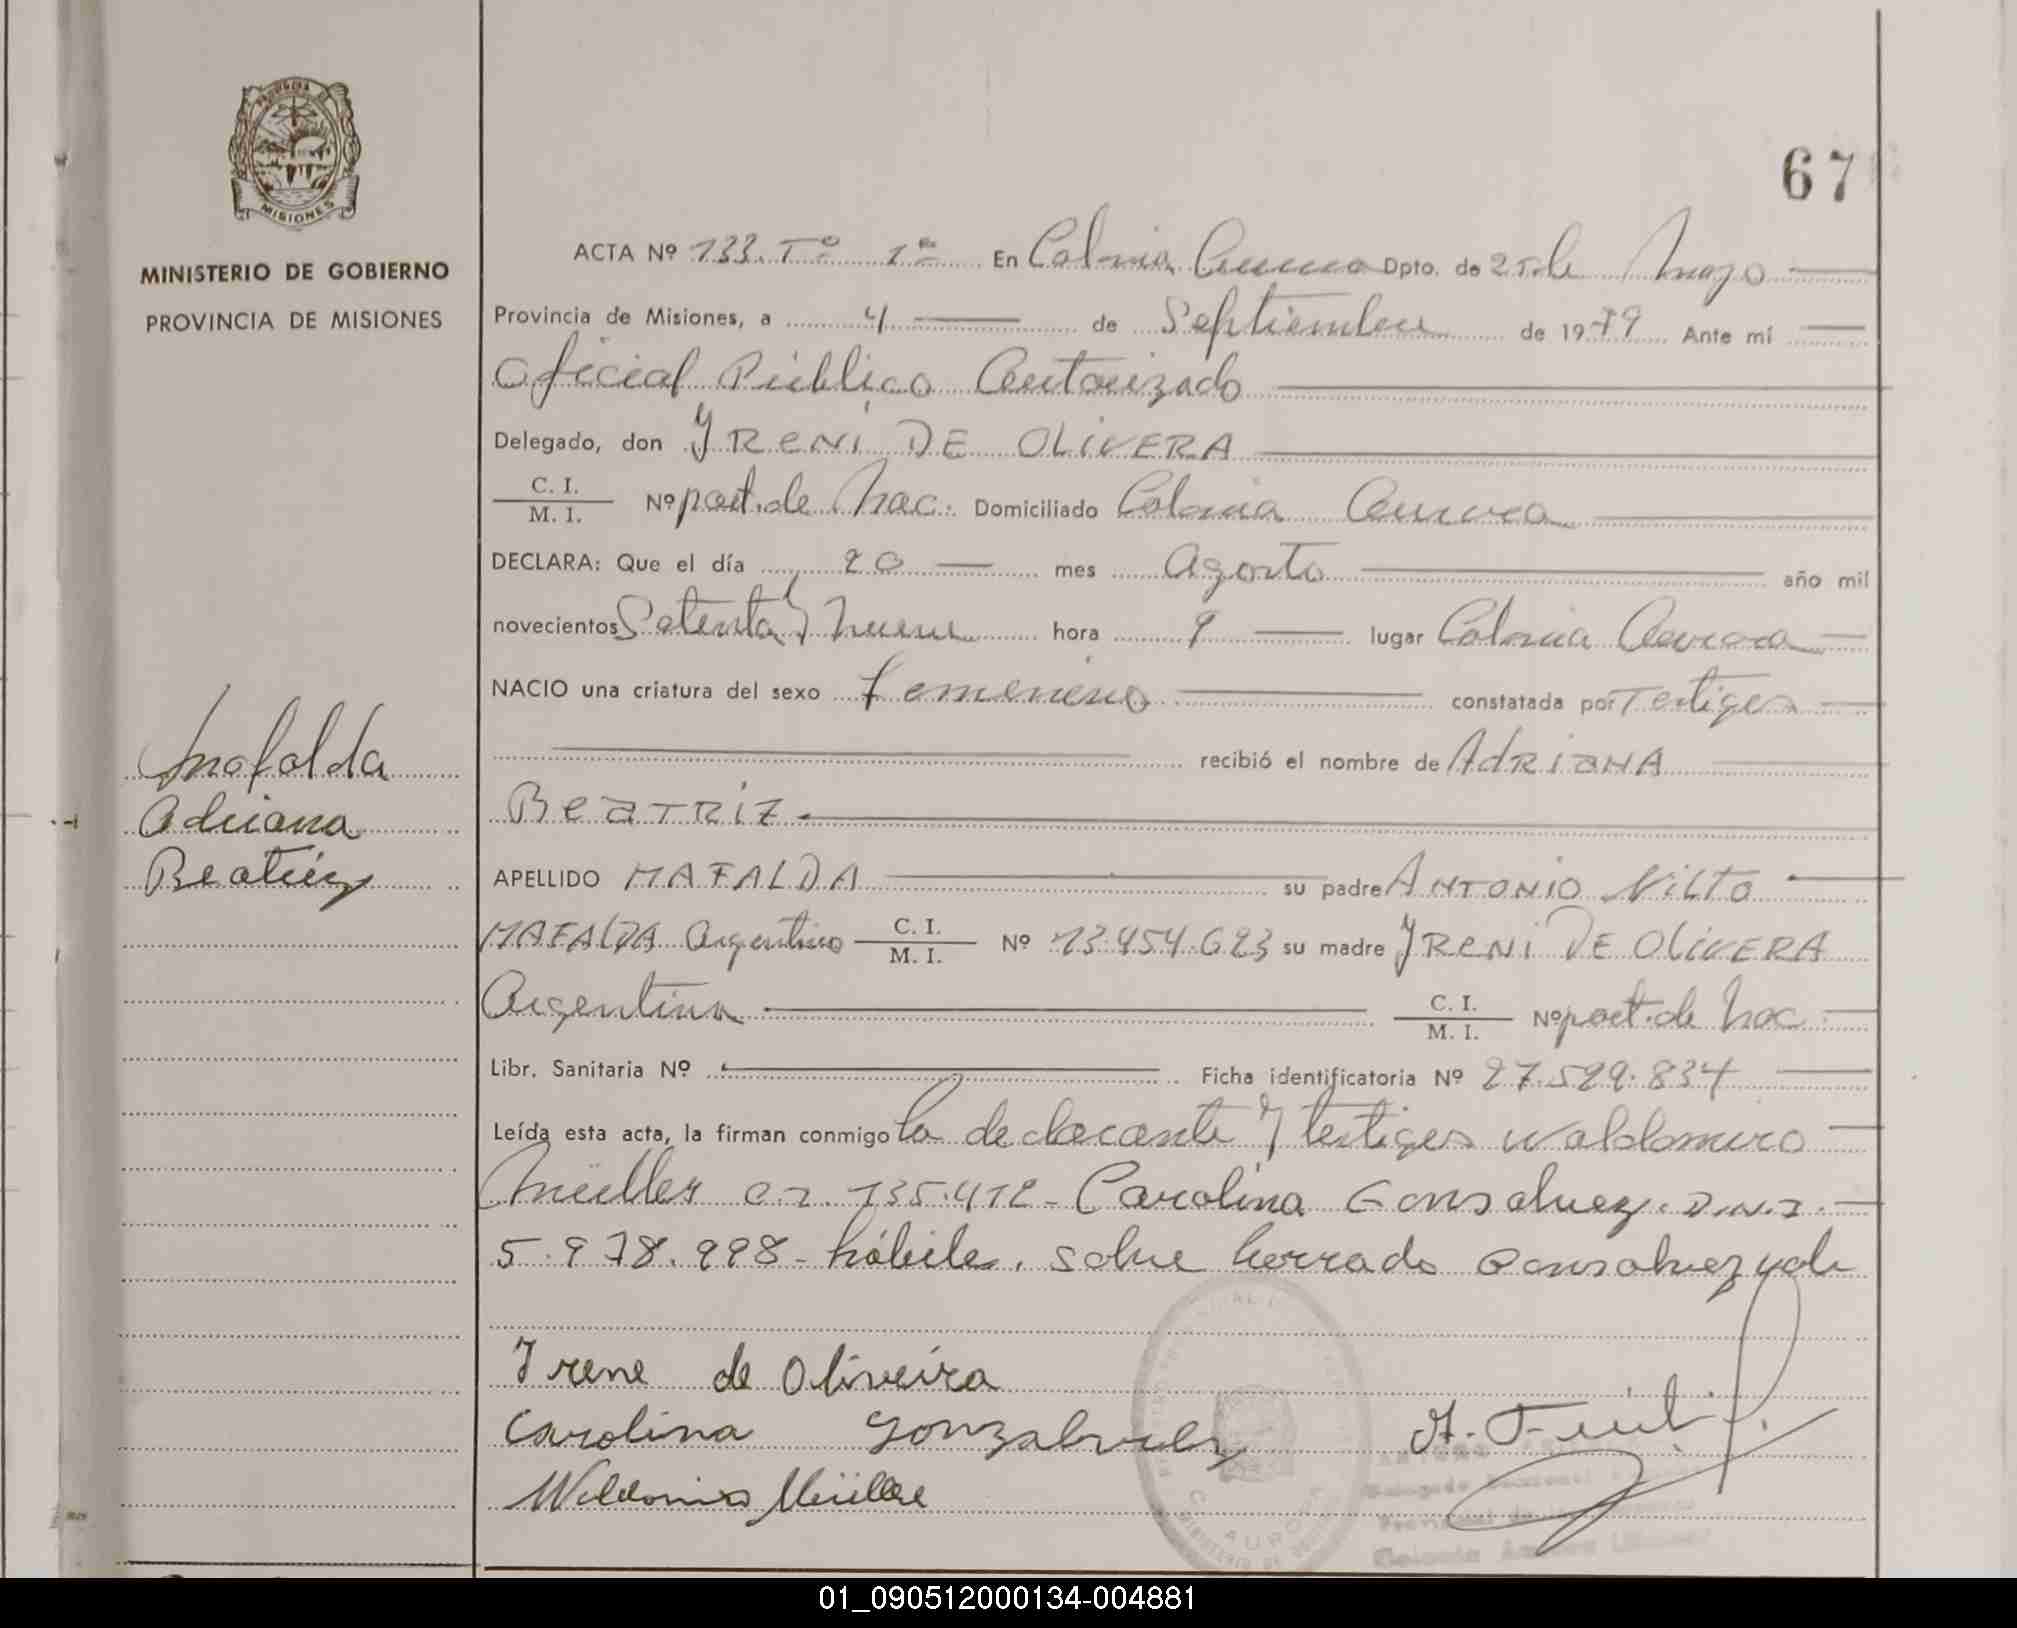 67
PROVINCIA DE
MISIONES
MINISTERIO DE GOBIERNO
PROVINCIA DE MISIONES
Mafalda
Adriana
Beatriz
ACTA Nº 133. Tº 1º En Colonia Aurora Dpto. de 25 de Mayo
Provincia de Misiones, a 4 de Septiembre de 1979 Ante mí
Oficial Público Autorizado
Delegado, don YRENI DE OLIVERA
C. I.
M. I. Nº part. de Nac. Domiciliado Colonia Aurora
DECLARA: Que el día 20 mes Agosto año mil
novecientos Setenta y nueve hora 9 lugar Colonia Aurora
NACIO una criatura del sexo femenino constatada por Testigos
recibió el nombre de ADRIANA
BEATRIZ
APELLIDO MAFALDA su padre ANTONIO NILTO
MAFALDA Argentino C. I. M. I. Nº 13.454.623 su madre YRENI DE OLIVERA
Argentina C. I. M. I. Nº part. de Nac.
Libr. Sanitaria Nº Ficha identificatoria Nº 27.529.834
Leída esta acta, la firman conmigo la declarante y testigos Waldomiro
Müller 135.412 - Carolina Gonsalvez. D.N.I.
5.978.998 - hábiles. sobre borrado Gonsalvez vale
Irene de Oliveira
Carolina Gonzalvez
Waldomiro Müller
Colonia Aurora